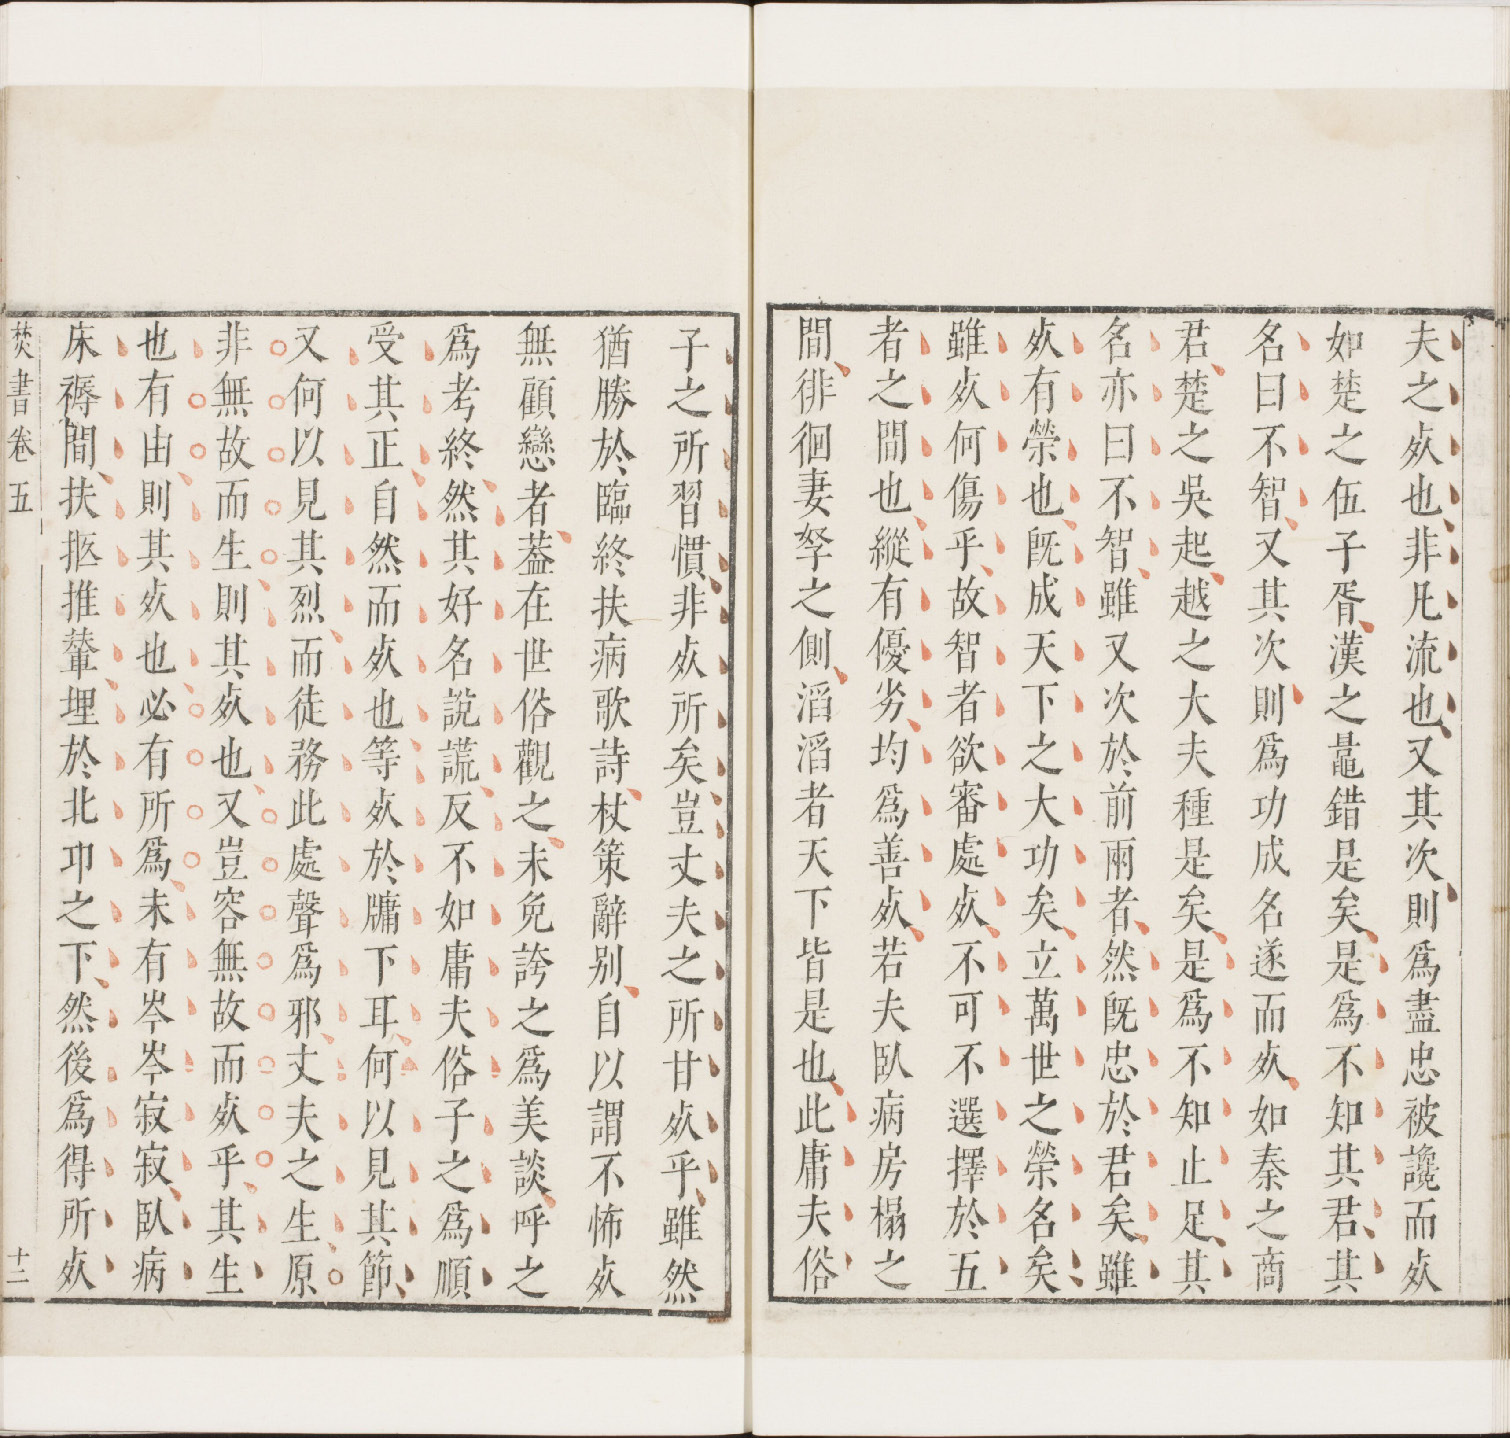 夫之㱠也非凡流也又其次則爲盡忠被讒而㱠
如楚之伍子胥漢之鼂錯是矣是爲不知其君其
名曰不智又其次則爲功成名遂而㱠如秦之商
君楚之吳起越之大夫種是矣是爲不知止足其
名亦曰不智雖又次於前兩者然旣忠於君矣雖
㱠有榮也旣成天下之大功矣立萬世之榮名矣
雖㱠何傷乎故智者欲審處㱠不可不選擇於五
者之間也縱有優劣均爲善㱠若夫臥病房榻之
間徘徊妻孥之側滔滔者天下皆是也此庸夫俗
子之所習慣非㱠所矣豈丈夫之所甘㱠乎雖然
猶勝於臨終扶病歌詩杖策辭别自以謂不怖㱠
無顧戀者葢在世俗觀之未免誇之爲美談呼之
爲考終然其好名說謊反不如庸夫俗子之爲順
受其正自然而㱠也等㱠於牖下耳何以見其節
又何以見其烈而徒務此處聲爲邪丈夫之生原
非無故而生則其㱠也又豈容無故而㱠乎其生
也有由則其㱠也必有所爲未有岑岑寂寂臥病
床褥間扶抠推輦埋於北邙之下然後爲得所㱠
焚書卷五
十二